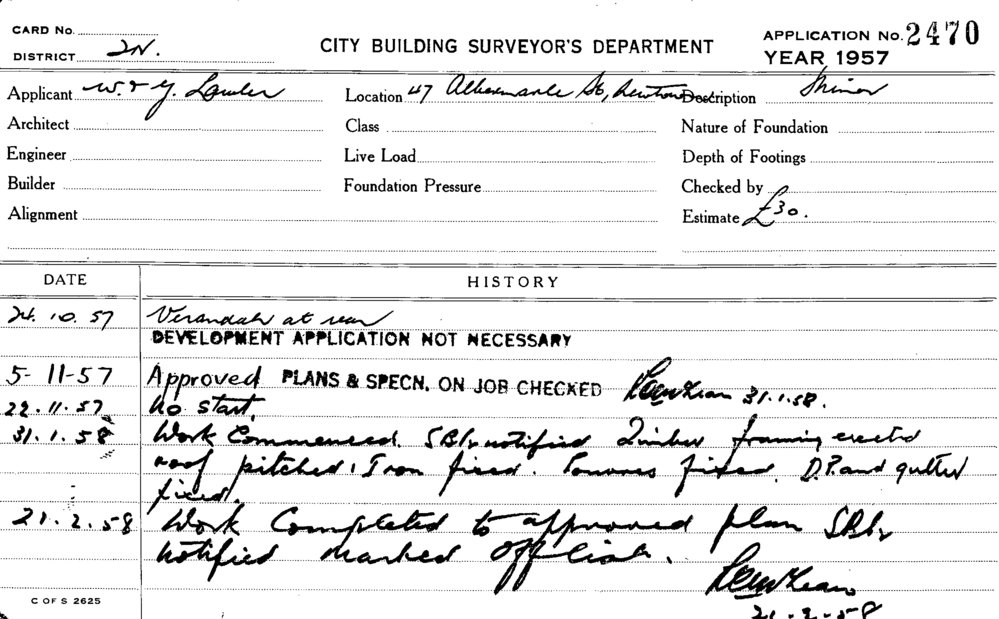 CARD No.
DISTRICT 2N.
CITY BUILDING SURVEYOR'S DEPARTMENT
APPLICATION No. 2470
YEAR 1957
Applicant W. & G. Lawler Location 47 Albermarle St, Newtown Description Minor
Architect Class Nature of Foundation
Engineer Live Load Depth of Footings
Builder Foundation Pressure Checked by
Alignment Estimate £30.
DATE HISTORY
24.10.57 Verandah at rear
DEVELOPMENT APPLICATION NOT NECESSARY
5-11-57 Approved PLANS & SPECN. ON JOB CHECKED 31.1.58.
22.11.57 No start.
31.1.58 Work Commenced. notified Timber framing erected
roof pitched, Iron fixed. Louvres fixed. D.P. and gutter
fixed.
21.2.58 Work Completed to approved plan
notified marked off list.
21-2-58
C OF S 2625